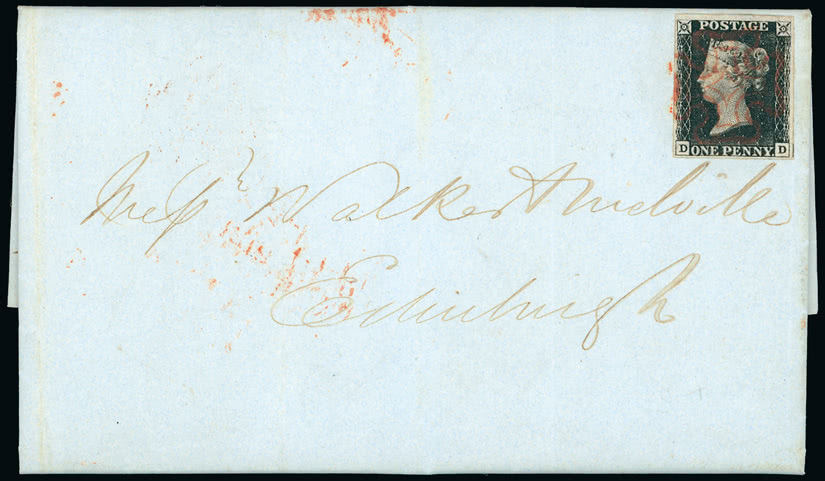 POSTAGE
D ONE PENNY D
Messrs Walker & Melville
Edinburgh